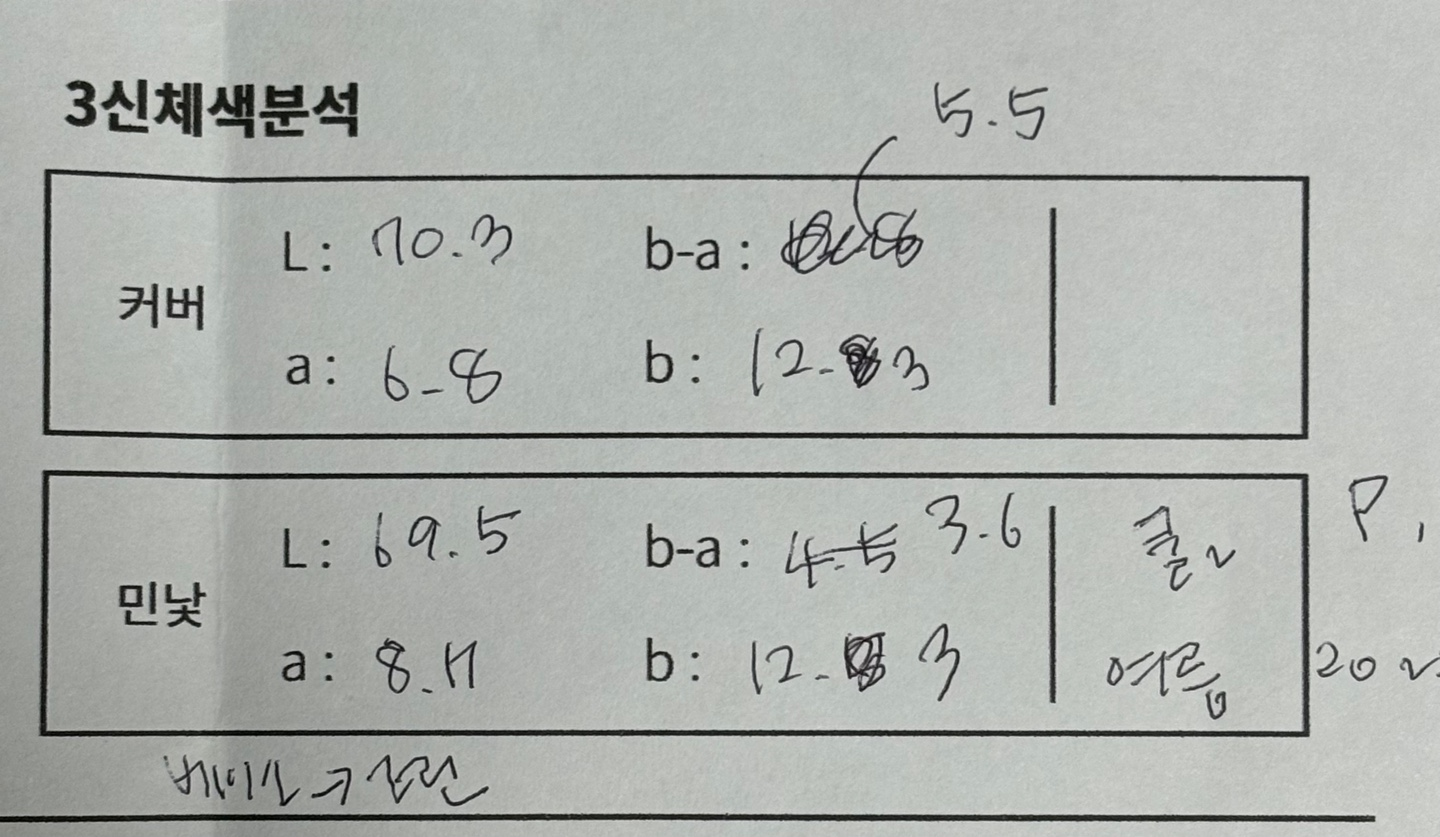 3신체색분석
5.5
L: 70.3 b-a:
커버
a: 6.8 b: 12.3
L: 69.5 b-a: 4.5 3.6 쿨~ P,
민낯
a: 8.7 b: 12.3 여름 20~